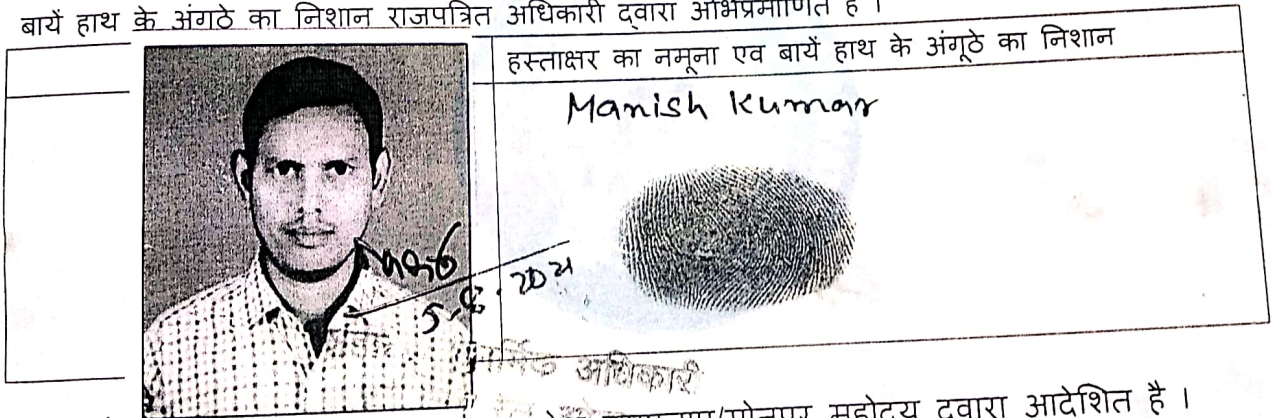 बायें हाथ के अंगठे का निशान राजपत्रित अधिकारी द्वारा अभिप्रमाणित है ।
हस्ताक्षर का नमूना एव बायें हाथ के अंगूठे का निशान
Manish Kumar
अधिकारी
महोदय द्वारा आदेशित है ।